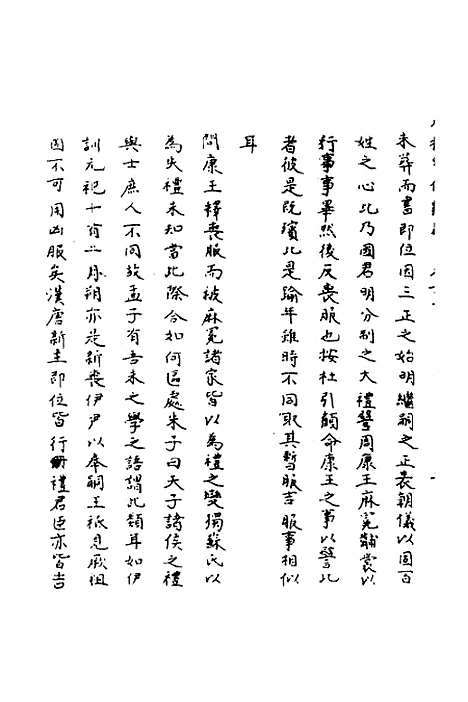 未葬而書即位因三正之始明繼嗣之正表朝儀以固百
姓之心此乃國君明分制之大禮譬周康王麻冕黼裳以
行事事畢然後反喪服也按杜引顧命康王之事以譬此
者彼是既殯此是踰年雖時不同取其暫服吉服事相似
耳
問康王釋喪服而被麻冕諸家皆以為禮之變獨蘇氏以
為失禮未知當此際合如何區處朱子曰天子諸侯之禮
與士庶人不同故孟子有吾未之學之語謂此類耳如伊
訓元祀十有二月朔亦是新喪伊尹以奉嗣王祗見厥祖
固不可用凶服矣漢唐新主即位皆行冊禮君臣亦皆吉